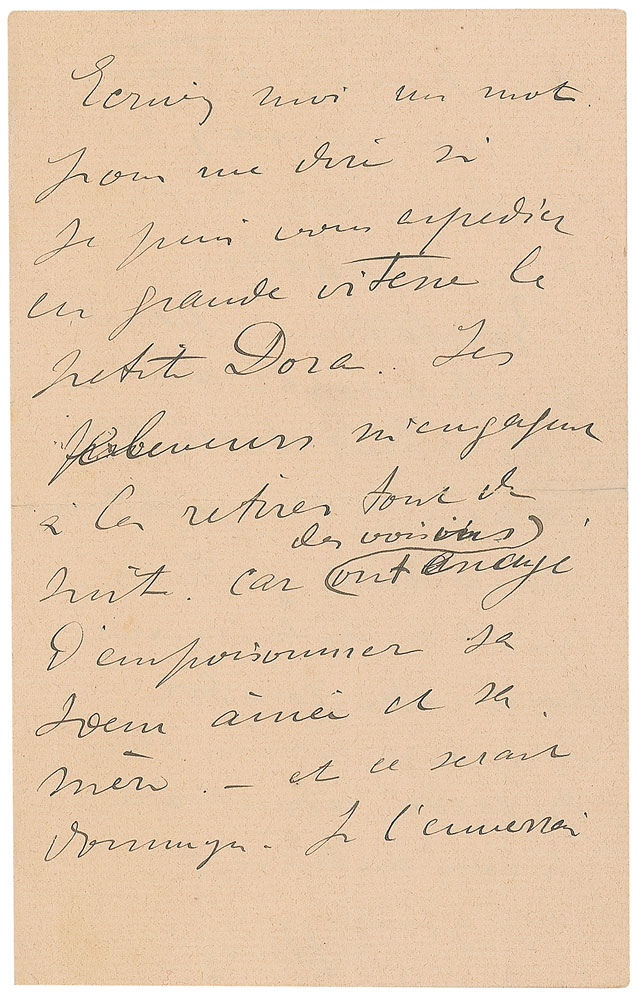 Ecrivez moi un mot
pour me dire si
Je puis vous expedier
en grande vitesse la
petite Dora. Les
m'engagent
à la retirer tout de
des voisins
suite. car ont essayé
D'empoisonner sa
soeur ainée et sa
mère. – et ce serait
dommage. Je l'enverrai